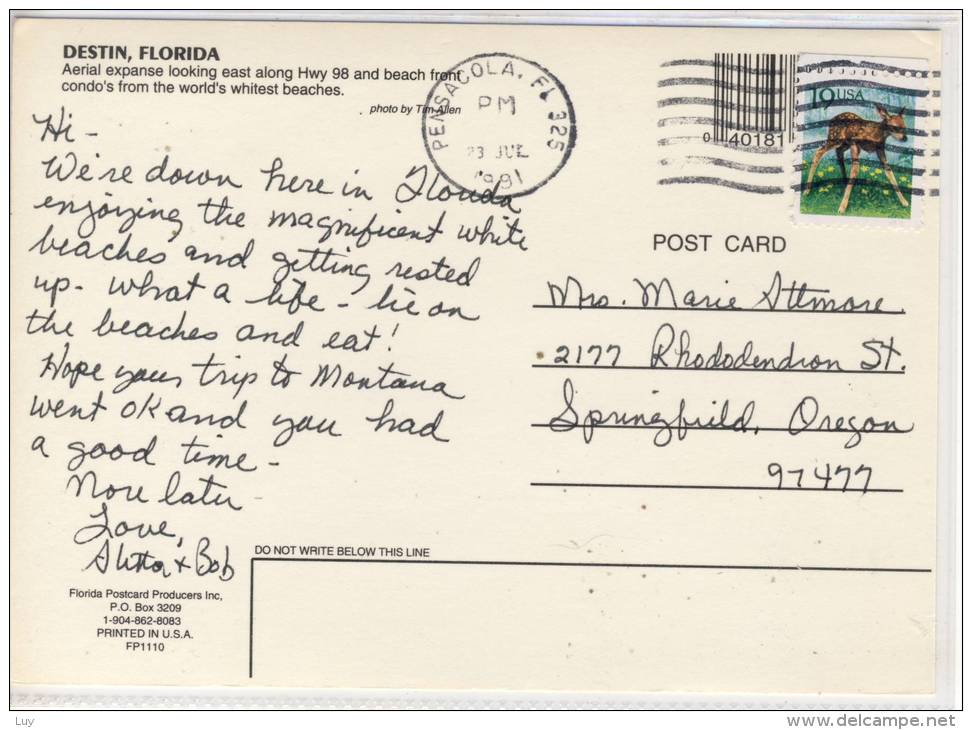 DESTIN, FLORIDA
Aerial expanse looking east along Hwy 98 and beach front
condo's from the world's whitest beaches.
photo by Tim Allen
PENSACOLA, FL 325
PM
23 JUL
1991
0 40181
19 USA
Hi -
We're down here in Florida
enjoying the magnificent white
beaches and getting rested
up - what a life - lie on
the beaches and eat!
Hope your trip to Montana
went OK and you had
a good time -
More later
Love,
& Bob
POST CARD
Mrs. Marie Attmore
2177 Rhododendron St.
Springfield, Oregon
97477
DO NOT WRITE BELOW THIS LINE
Florida Postcard Producers Inc,
P.O. Box 3209
1-904-862-8083
PRINTED IN U.S.A.
FP1110
Luy
www.delcampe.net